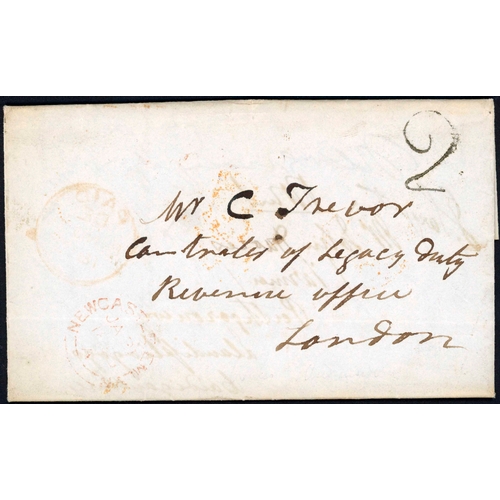 2
Mr C Trevor
Controler of Legacy Duty
Revenue office
London
NEWCAS